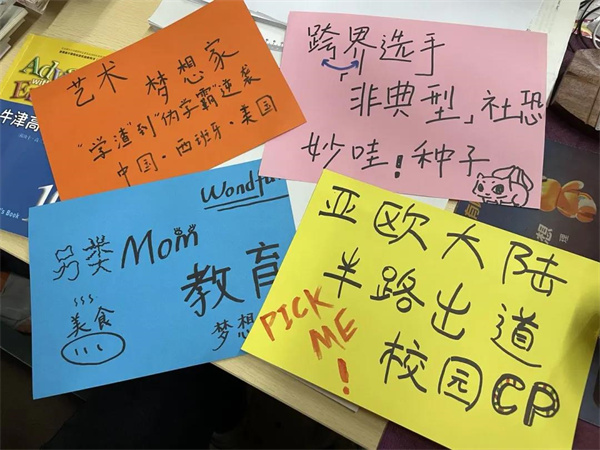 艺术 梦想家
"学渣"到"伪学霸"逆袭
中国·西班牙·美国
跨界选手
「非典型」社恐
妙哇!种子
Wondful
另类Mom
教育
美食
梦想
亚欧大陆
半路出道
校园CP
PICK
ME
!
牛津高